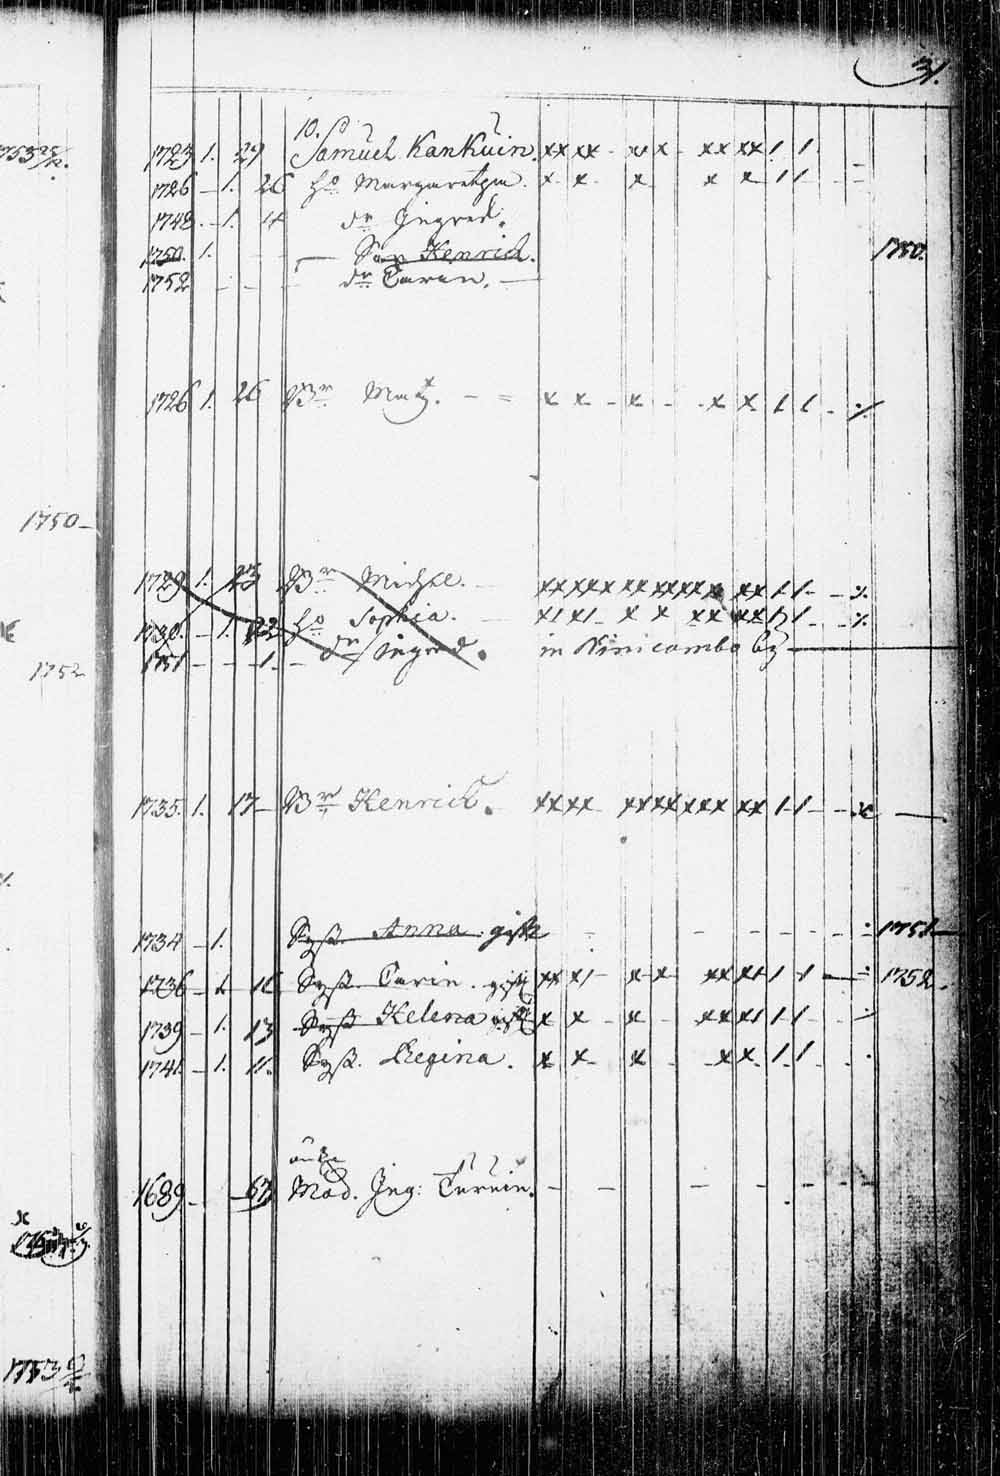 31.
10.
1723 1. 29 Samuel Kankuin. xx xx - xx x - xx xx 1. 1.
1726 - 1. 26 ho Margaretha. x x - x x x 1 1 -
1748. - 1. 4 dr Ingred.
1750. 1. Son Henrich. 1750.
1752 dr Carin.
1726 1. 26 Br Matz. - = x x - x - x x 1 1 - ·/.
1750 -
1729 1. 23 Br Michel. xx xx xx xx xx xx xx xx 1 1 - ·/.
1730. - 1. 22 ho Sophia. x1 x1 - x x xx xx 1 1 - ·/.
1751 - - 1. - dr Ingred. in Kinicambo by
1752
1735. 1. 17 - Br Henrich. xx xx xx xx xx x xx 1 1 - -
1734 - 1. Syst. Anna gift 1751
1736 - 1. 16 Syst. Carin. gift xx x1 - x x xx xx 1 1 1752.
1739 - 1. 13 Syst Helena gift x x - x - xx xx 1 1 -
1741 - 1. 11. Syst. Regina. x x - x - x x 1 1 - -
1689 - 63 Mod. Ing: - - - - - - -
1753